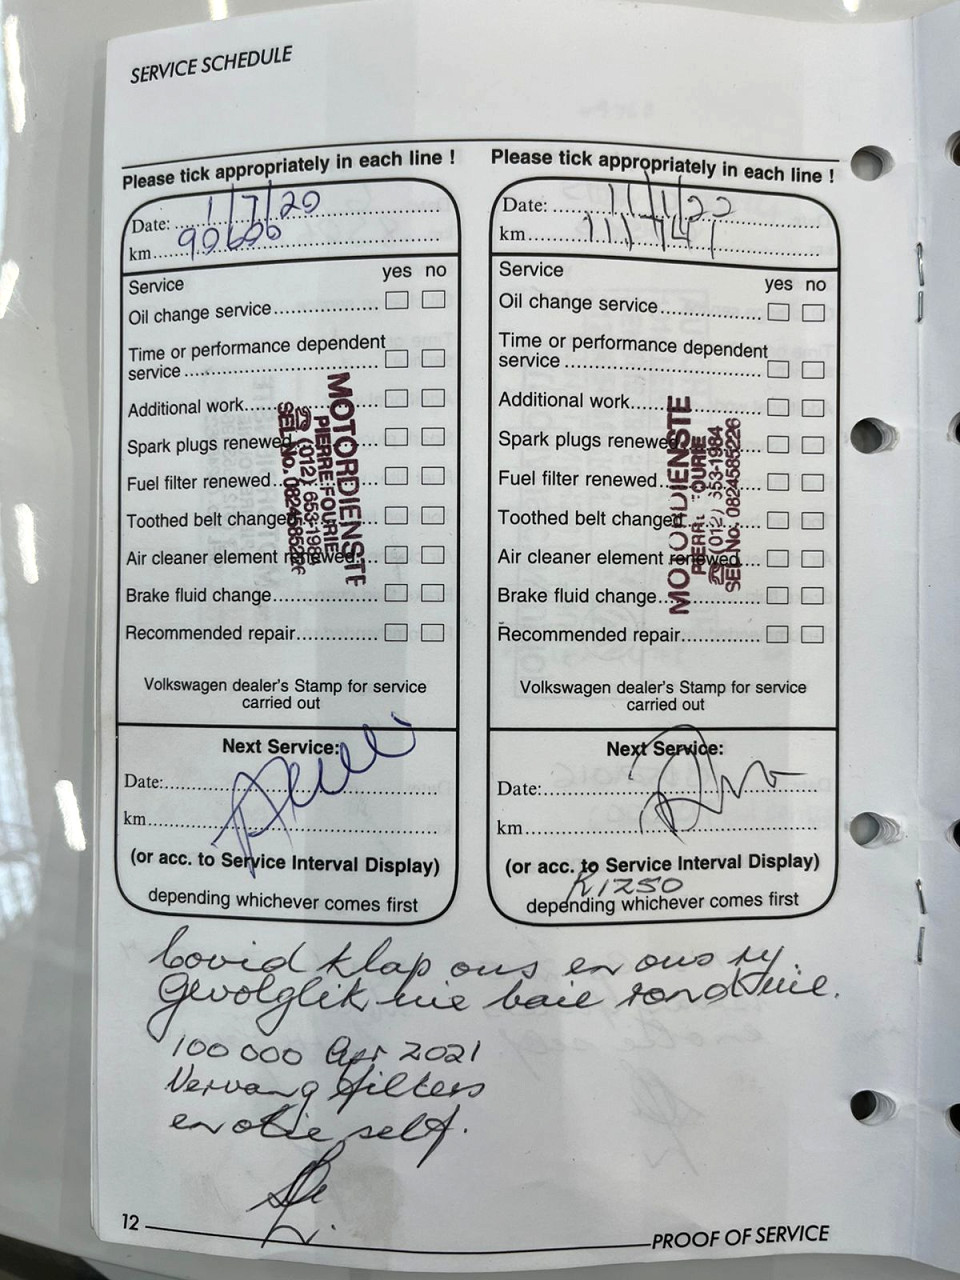 SERVICE SCHEDULE
Please tick appropriately in each line !
Date: 1/7/20
km 90606
Service yes no
Oil change service
Time or performance dependent
service
Additional work
Spark plugs renewed
Fuel filter renewed
Toothed belt changed
Air cleaner element renewed
Brake fluid change
Recommended repair
MOTORDIENSTE
PIERRE FOURIE
☎ (012) 653-1984
SEL No. 0824585226
Volkswagen dealer's Stamp for service
carried out
Next Service:
Date:
km
(or acc. to Service Interval Display)
depending whichever comes first
Please tick appropriately in each line !
Date: 11/1/22
km 111741
Service
yes no
Oil change service
Time or performance dependent
service
Additional work
Spark plugs renewed
Fuel filter renewed
Toothed belt changed
Air cleaner element renewed
Brake fluid change
Recommended repair
MOTORDIENSTE
PIERRE FOURIE
☎ (012) 653-1984
SEL No: 0824585226
Volkswagen dealer's Stamp for service
carried out
Next Service:
Date:
km
(or acc. to Service Interval Display)
R1250
depending whichever comes first
Covid klap ons en ons ry
Gevolglik nie baie rond nie.
100 000 Apr 2021
Vervang filters
en olie self.
12
PROOF OF SERVICE